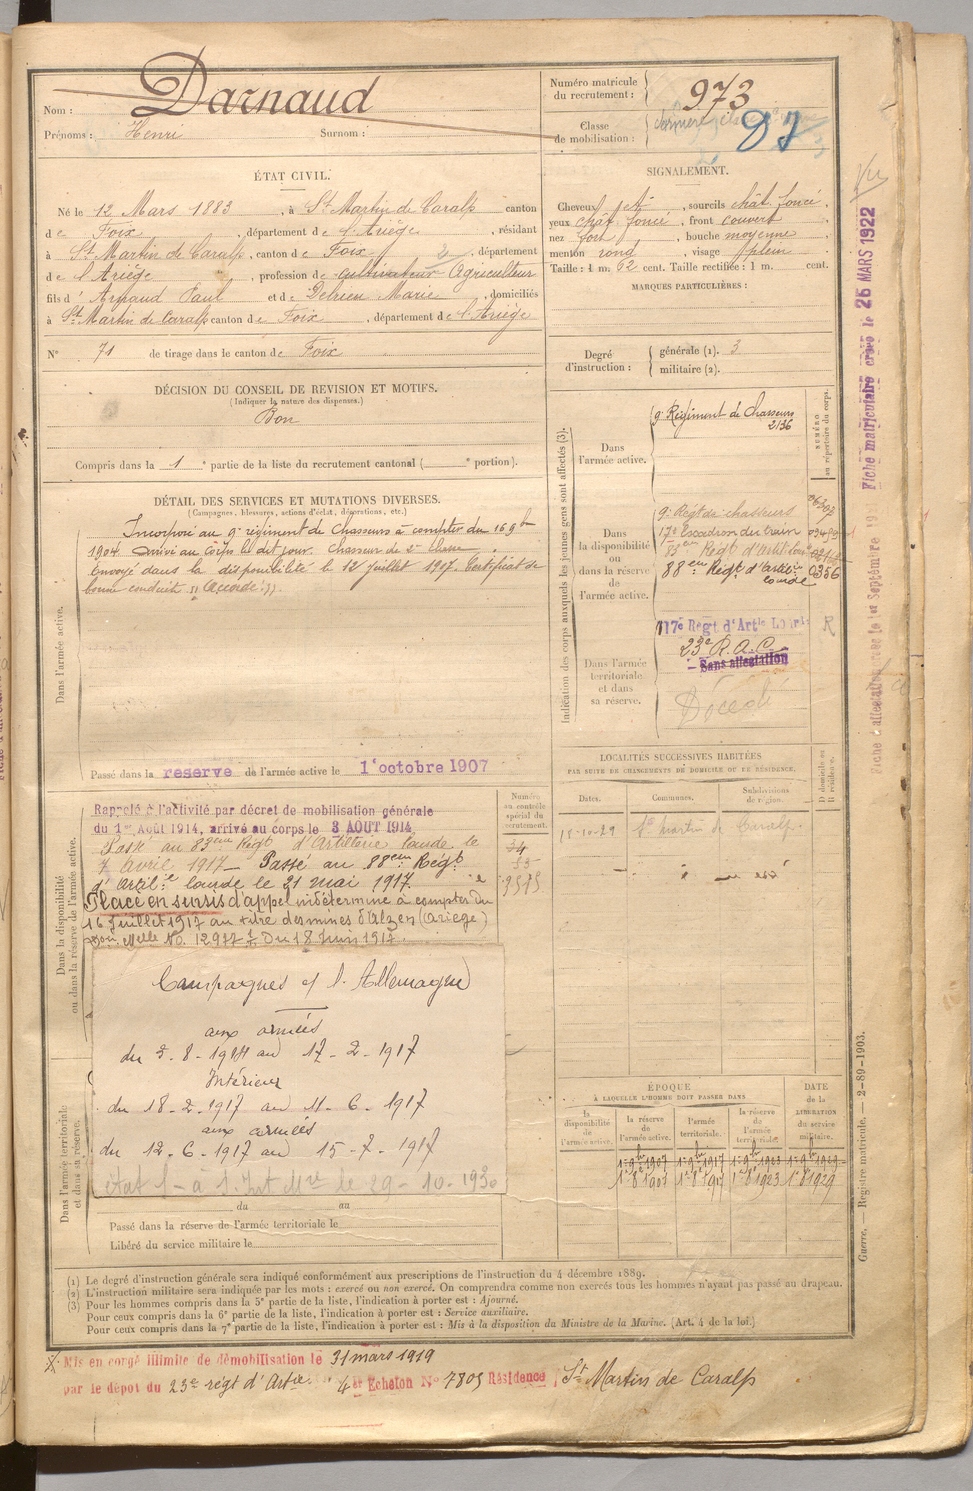 Nom : Darnaud
Prénoms : Henri Surnom :
Numéro matricule du recrutement : 973
Classe de mobilisation :
ÉTAT CIVIL.
Né le 12 Mars 1883, à St Martin de Caralp canton
de Foix, département de l'Ariège, résidant
à St Martin de Caralp, canton de Foix, département
de l'Ariège, profession de cultivateur Agriculteur
fils d' Arnaud Paul et de Delrieu Marie, domiciliés
à St Martin de Caralp canton de Foix, département de l'Ariège
N° 71 de tirage dans le canton de Foix
SIGNALEMENT.
Cheveux et, sourcils chât. foncé,
yeux chât. foncé, front couvert
nez fort, bouche moyenne,
menton rond, visage plein
Taille : 1 m. 62 cent. Taille rectifiée : 1 m. cent.
MARQUES PARTICULIÈRES :
Degré d'instruction : générale (1). 3
militaire (2).
DÉCISION DU CONSEIL DE REVISION ET MOTIFS.
(Indiquer la nature des dispenses.)
Bon
Compris dans la 1e partie de la liste du recrutement cantonal ( e portion).
DÉTAIL DES SERVICES ET MUTATIONS DIVERSES.
(Campagnes, blessures, actions d'éclat, décorations, etc.)
Dans l'armée active.
Incorporé au 9e régiment de Chasseurs à compter du 16 9bre
1904. Arrivé au corps le dit jour. Chasseur de 2e Classe.
Envoyé dans la disponibilité le 12 juillet 1907. Certificat de
bonne conduite "Accordé".
Passé dans la reserve de l'armée active le 1er octobre 1907
Indication des corps auxquels les jeunes gens sont affectés (3).
NUMÉRO au répertoire du corps.
Dans l'armée active.
9e Régiment de Chasseurs
2136
Dans la disponibilité ou dans la réserve de l'armée active.
9e Régt de chasseurs
17e Escadron du train
83em Régt d'Artie lourde
88em Régt d'artie lourde 0356
117e Régt d'Artie Lourde
23e R.A.C.
Sans affectation
Dans l'armée territoriale et dans sa réserve.
Décédé
LOCALITÉS SUCCESSIVES HABITÉES
PAR SUITE DE CHANGEMENTS DE DOMICILE OU DE RÉSIDENCE.
Numéro au contrôle spécial du recrutement.
Dates. Communes. Subdivisions de région. D domicile ou R résidence.
St Martin de Caralp.
Dans la disponibilité ou dans la réserve de l'armée active.
Rappelé à l'activité par décret de mobilisation générale
du 1er Août 1914, arrivé au corps le 3 AOUT 1914
Passé au 83em Régt d'Artillerie lourde le
7 avril 1917 — Passé au 88em Régt
d'Artilie lourde le 21 mai 1917.
Placé en sursis d'appel indéterminé à compter du
16 Juillet 1917 au titre des mines d'Alzen (Ariège)
Du 18 Juin 1917.
Campagnes c/ l'Allemagne
aux armées
du 3-8-1914 au 17-2-1917
Intérieur
du 18-2-1917 au 11-6-1917
aux armées
du 12-6-1917 au 15-7-1917
Dans l'armée territoriale et dans sa réserve.
du au
Passé dans la réserve de l'armée territoriale le
Libéré du service militaire le
ÉPOQUE
À LAQUELLE L'HOMME DOIT PASSER DANS
DATE de la LIBÉRATION du service militaire.
la disponibilité de l'armée active. la réserve de l'armée active. l'armée territoriale. la réserve de l'armée territoriale.
(1) Le degré d'instruction générale sera indiqué conformément aux prescriptions de l'instruction du 4 décembre 1889.
(2) L'instruction militaire sera indiquée par les mots : exercé ou non exercé. On comprendra comme non exercés tous les hommes n'ayant pas passé au drapeau.
(3) Pour les hommes compris dans la 5e partie de la liste, l'indication à porter est : Ajourné.
Pour ceux compris dans la 6e partie de la liste, l'indication à porter est : Service auxiliaire.
Pour ceux compris dans la 7e partie de la liste, l'indication à porter est : Mis à la disposition du Ministre de la Marine. (Art. 4 de la loi.)
Mis en congé illimité de démobilisation le 31 mars 1919
par le dépôt du 23e régt d'Artie. 4e Echelon N° 7805 Résidence St Martin de Caralp
Fiche matriculaire créée le 25 MARS 1922
Guerre. — Registre matricule. — 2-89-1903.